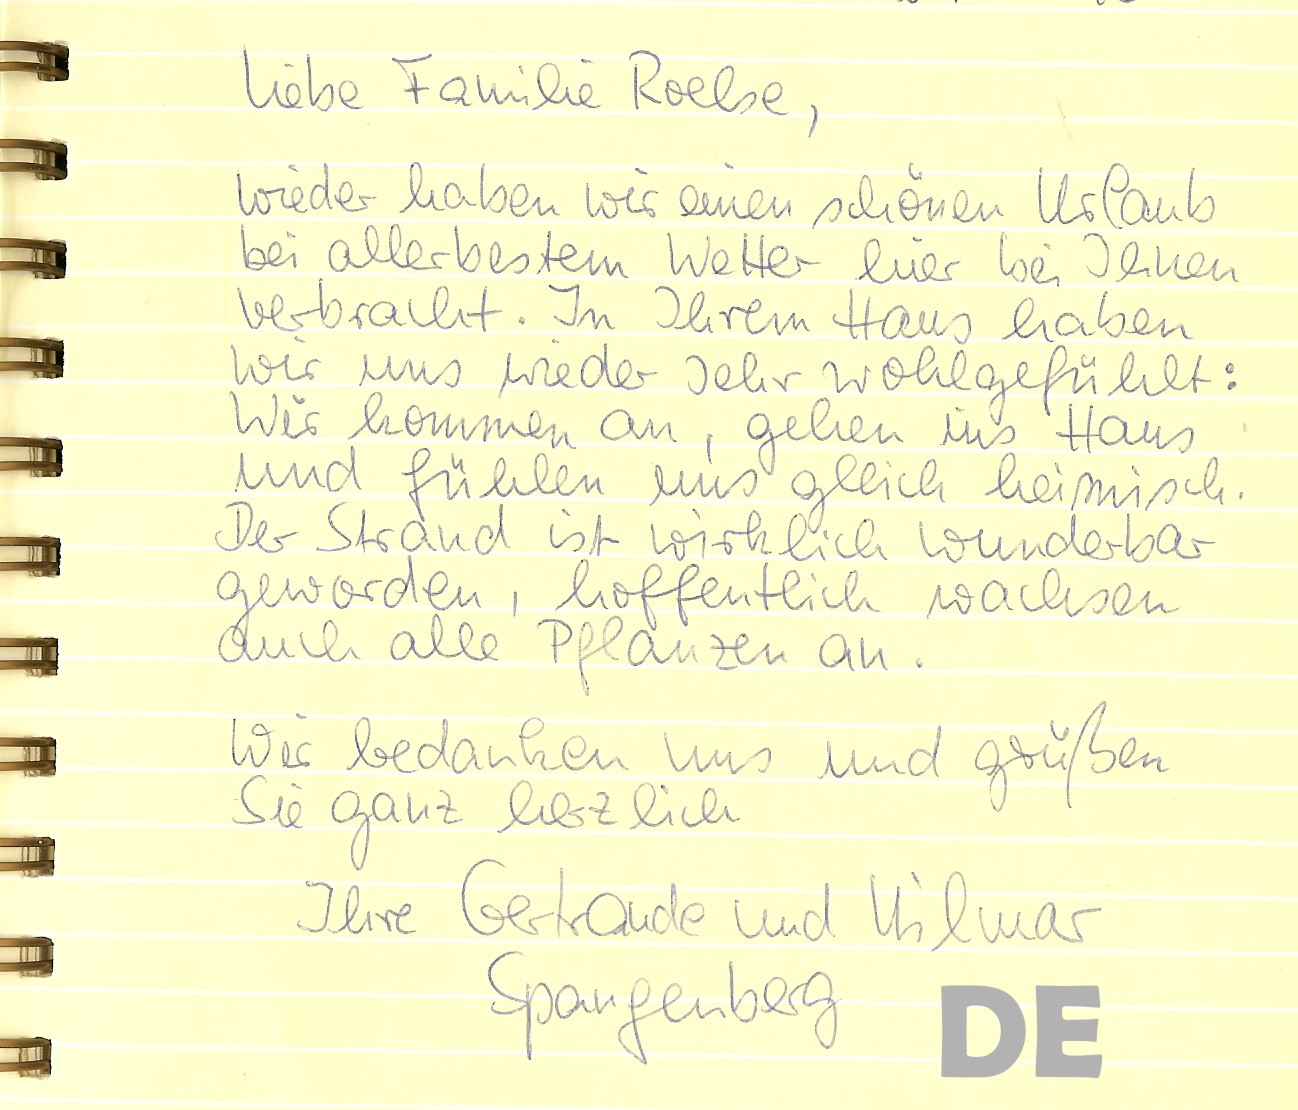 Liebe Familie Roelse,
wieder haben wir einen schönen Urlaub
bei allerbestem Wetter hier bei Ihnen
verbracht. In Ihrem Haus haben
wir uns wieder sehr wohlgefühlt:
Wir kommen an, gehen ins Haus
und fühlen uns gleich heimisch.
Der Strand ist wirklich wunderbar
geworden, hoffentlich wachsen
auch alle Pflanzen an.
Wir bedanken uns und grüßen
Sie ganz herzlich
Ihre Gertraude und Hilmar
Spangenberg
DE